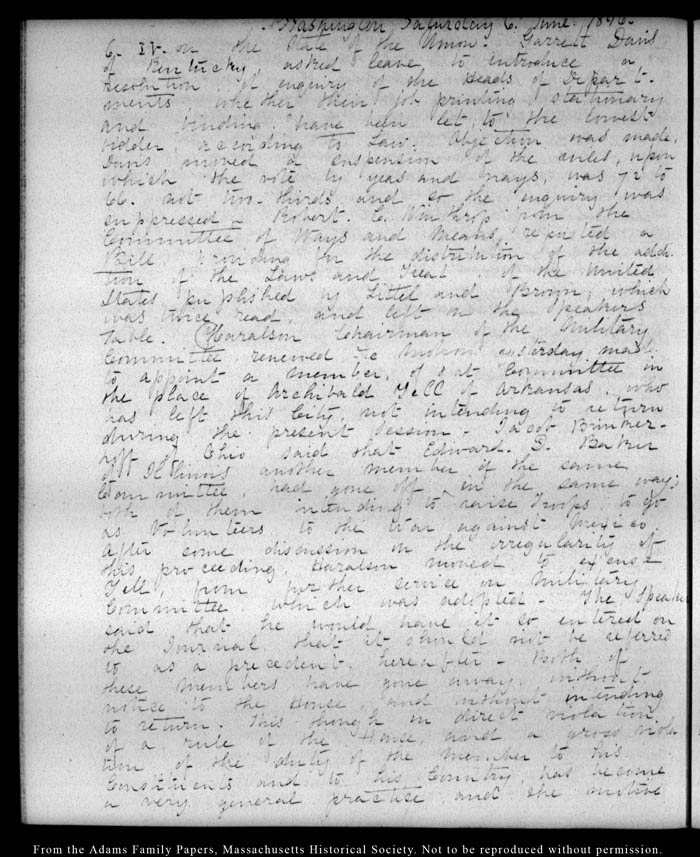 Washington, Saturday 6. June. 1846.
6. IV. on the State of the Union. Garrett Davis
of Kentucky, asked leave to introduce a
resolution of enquiry of the Heads of Depart-
ments whether their job printing, stationary
and binding have been let to the lowest
bidder, according to Law. Objection was made.
Davis moved a suspension of the rules, upon
which the vote by yeas and nays, was 72 to
66. not two-thirds, and so the enquiry was
suppressed. Robert. C. Winthrop from the
Committee of Ways and Means, reported a
Bill providing for the distribution of the edi-
tion of the Laws and Treat. of the United
States, published by Littel and Brown, which
was twice read, and left on the Speakers
Table. Haralson Chairman of the Military
Committee, renewed the motion, yesterday made
to appoint a member, of that Committee in
the place of Archibald Yell of Arkansas, who
has left this City, not intending to return
during the present Session. Jacob Brinker-
hoff of Ohio said that Edward. D. Baker
of Illinois another member of the same
Committee, had gone off in the same way;
both of them intending to raise Troops, to go
as Volunteers to the War against Mexico.
After some discussion on the irregularity of
this proceeding, Haralson moved to excuse
Yell, from further service on Military
Committee which was adopted - The Speaker
said that he would have it so entered on
the Journal, that it should not be referred
to as a precedent, hereafter - Both of
these members have gone away, without
notice to the House and without intending
to return. This though in direct violation
of a rule of the House, and a gross viola
tion of the duty of the member to his
Constituents and to his Country, has become
a very general practise and the motive
From the Adams Family Papers, Massachusetts Historical Society. Not to be reproduced without permission.